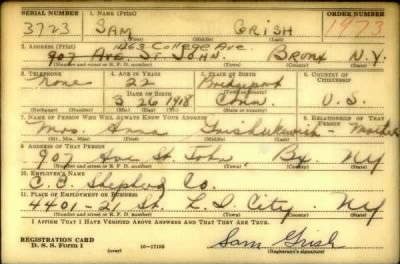 SERIAL NUMBER 1. NAME (Print) ORDER NUMBER
3723 SAM GRISH 1973
(First) (Middle) (Last)
1263 College Ave.
2. ADDRESS (Print)
907 AVE. ST. JOHN. BRONX N.Y.
(Number and street or R. F. D. number) (Town) (County) (State)
3. TELEPHONE 4. AGE IN YEARS 5. PLACE OF BIRTH 6. COUNTRY OF CITIZENSHIP
None 22 Bridgeport
DATE OF BIRTH (Town or county)
3 26 1918 Conn. U.S.
(Exchange) (Number) (Mo.) (Day) (Yr.) (State or country)
7. NAME OF PERSON WHO WILL ALWAYS KNOW YOUR ADDRESS 8. RELATIONSHIP OF THAT PERSON
Mrs. Anna Mother
(Mr., Mrs., Miss) (First) (Middle) (Last)
9. ADDRESS OF THAT PERSON
907 Ave St. John Bx. NY
(Number and street or R. F. D. number) (Town) (County) (State)
10. EMPLOYER'S NAME
C. B. Co.
11. PLACE OF EMPLOYMENT OR BUSINESS
4401-21 St. L I City. NY
(Number and street or R. F. D. number) (Town) (County) (State)
I AFFIRM THAT I HAVE VERIFIED ABOVE ANSWERS AND THAT THEY ARE TRUE.
REGISTRATION CARD
D. S. S. Form 1 (over) 16-17105 Sam Grish
(Registrant's signature)